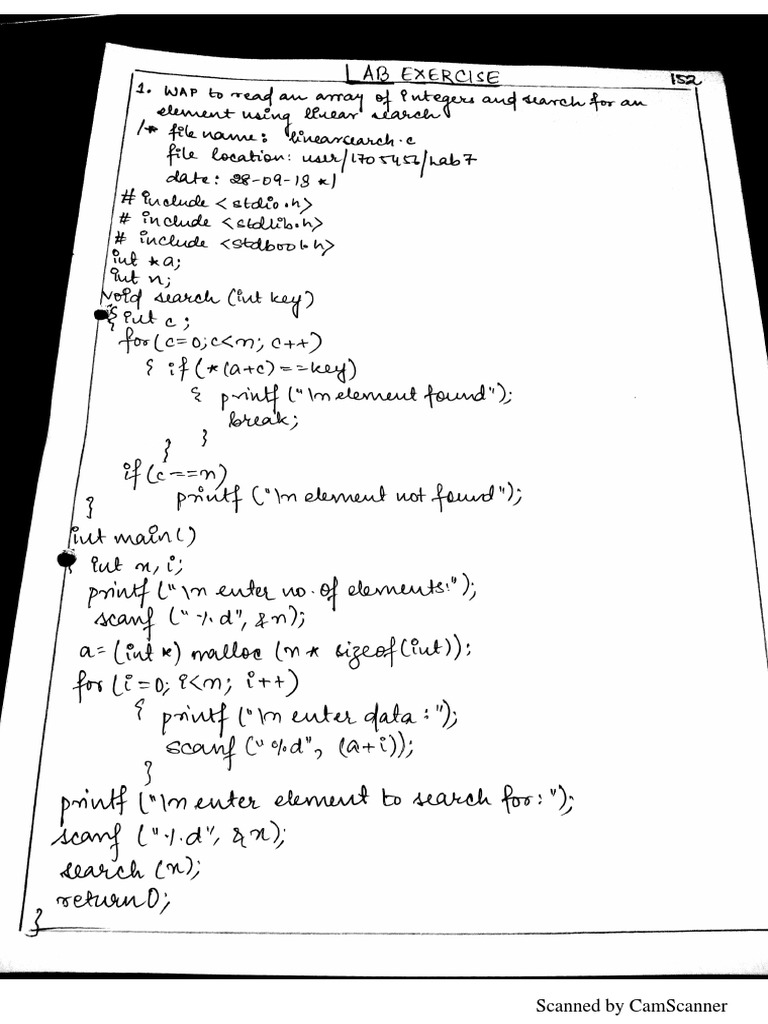 LAB EXERCISE
152
1. WAP to read an array of integers and search for an
element using linear search
/* file name: linearsearch.c
file location: user/1705456/Lab7
date: 28-09-18 */
# include <stdio.h>
# include <stdlib.h>
# include <stdbool.h>
int *a;
int n;
void search (int key)
{ int c;
for(c=0;c<n; c++)
{ if(*(a+c)==key)
{ printf ("\n element found");
break;
}
}
if(c==n)
printf ("\n element not found");
}
int main()
{ int x, i;
printf ("\n enter no. of elements:");
scanf ("%d", &n);
a=(int *) malloc (n* sizeof(int));
for (i=0; i<n; i++)
{ printf ("\n enter data :");
scanf ("%d", (a+i));
}
printf ("\n enter element to search for:");
scanf ("%d", &x);
search (x);
return 0;
}
Scanned by CamScanner